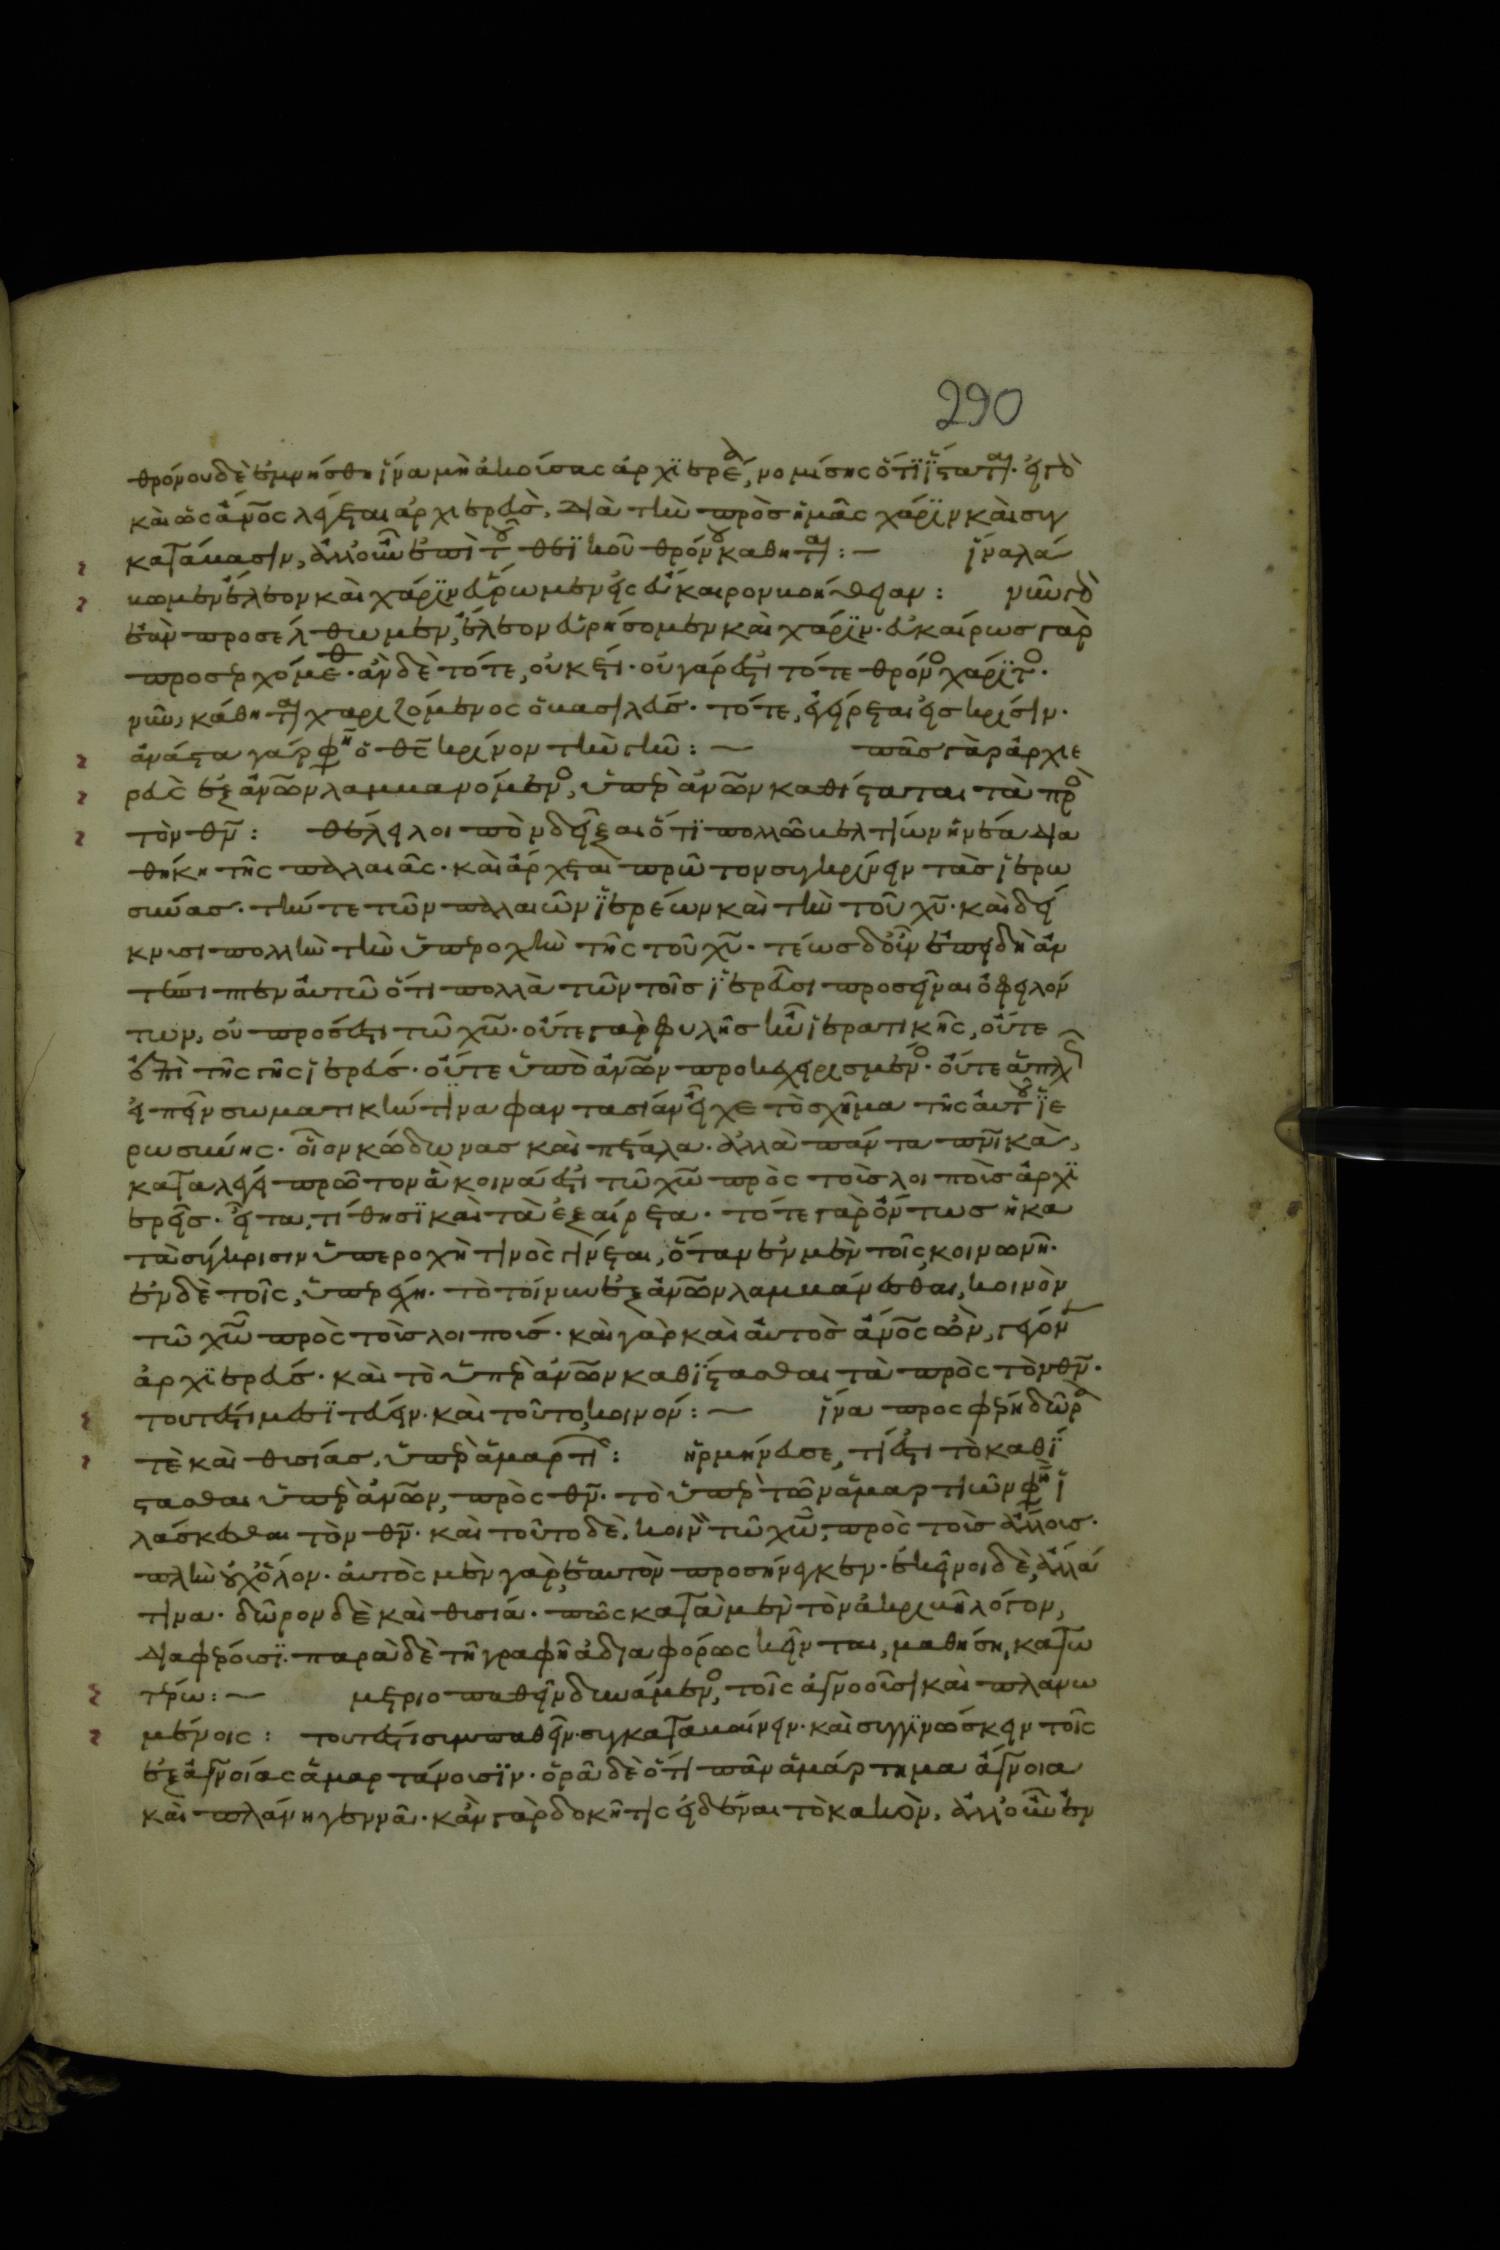 290
θρόνου δὲ ἐμνήσθη ἵνα μὴ ἀκούσας ἀρχϊερέα, νομίσης ὅτϊ ΐσταται· εἰ γὸ
καὶ ὡς ἄνος λέγεται ἀρχιερεὺς, διὰ τὴν πρὸς ἡμᾶς χάρϊν καὶ συγ
κατάβασιν, ἀλλ' οὖν ἐπὶ τοῦ θεϊκοῦ θρόνου κάθηται :—      ἵνα λά
βωμεν ἔλεον καὶ χάρϊν εὕρωμεν εἰς εὔκαιρον βοήθειαν :      νῦν γὸ
ἐὰν προσέλθωμεν, ἔλεον εὑρήσομεν καὶ χάρϊν· εὐκαίρως γὰρ
προσερχόμεθ· ἂν δὲ τότε, οὐκέτι· οὐ γάρ ἐστι τότε θρόνος χάρϊτος·
νῦν, κάθηται χαριζόμενος ὁ βασιλεύς· τότε, ἐγείρεται εἰς κρίσιν·
ἀνάστα γάρ φησιν ὁ θς κρίνον τὴν γῆν :—      πᾶς γὰρ ἀρχιε
ρεὺς ἐξ ἀνων λαμβανόμενος, ὑπὲρ ἀνων καθίσταται τὰ πρὸς
τὸν θν :      θέλει λοιπὸν δεῖξαι ὅτϊ πολλῶ βελτίων ἡ νέα δια
θήκη τῆς παλαιᾶς· καὶ ἄρχεται πρῶτον συγκρίνειν τὰς ἱερω
σύνας· τήν τε τῶν παλαιῶν ἱερέων καὶ τὴν τοῦ χυ· καὶ δεί
κνυσι πολλὴν τὴν ὑπεροχὴν τῆς τοῦ χυ· τέως δ' οὖν ἐπειδὴ ἀν
τέπιπτεν αὐτῶ ὅτι πολλὰ τῶν τοῖς ϊερεῦσι προσεῖναι ὀφειλόν
των, οὐ πρόσεστι τῶ χω· οὔτε γὰρ φυλῆς ἦν ἱερατικῆς, οὔτε
ἐπὶ τῆς γῆς ἱερεύς· οὔτε ὑπὸ ἀνων προκεχειρισμένος· οὔτε ἁπλ
εἰπεῖν σωματικήν τινα φαντασίαν εἶχε τὸ σχῆμα τῆς αὐτοῦ ϊε
ρωσύνης· οἷον κώδωνας καὶ πέταλα· ἀλλὰ πάντα πνικὰ,
καταλέγει πρῶτον ἃ κοινά ἐστι τῶ χω πρὸς τοὺς λοιποὺς ἀρχϊ
ερεῖς· εἶτα, τίθησϊ καὶ τὰ ἐξαίρετα· τότε γὰρ ὄντως ἡ κα
τὰ σύγκρισιν ὑπεροχὴ τινὸς γίνεται, ὅταν ἐν μὲν τοῖς, κοινωνῆ·
ἐν δὲ τοῖς, ὑπερέχη· τὸ τοίνυν ἐξ ἀνων λαμβάνεσθαι, κοινὸν
τῶ χω πρὸς τοὺς λοιπούς· καὶ γὰρ καὶ αὐτὸς ἄνος ὢν, γέγονεν
ἀρχϊερεύς· καὶ τὸ ὑπὲρ ἀνων καθϊστασθαι τὰ πρὸς τὸν θν·
τουτέστι μεσϊτεύειν· καὶ τοῦτο, κοινόν :—      ἵνα προσφέρη δῶρά
τὲ καὶ θυσίας, ὑπὲρ ἁμαρτιῶν :      ἡρμήνευσε, τί ἐστι τὸ καθΐ
στασθαι ὑπὲρ ἀνων, πρὸς θν· τὸ ὑπὲρ τῶν ἁμαρτιῶν φησὶν ϊ
λάσκεσθαι τὸν θν· καὶ τοῦτο δὲ, κοινὸν τῶ χω, πρὸς τοὺς ἄλλους·
πλὴν οὐχ ὅλον· αὐτὸς μὲν γὰρ, ἑαυτὸν προσήνεγκεν· ἐκεῖνοι δὲ, ἀλλά
τινα· δῶρον δὲ καὶ θυσία· πῶς κατὰ μὲν τὸν ἀκριβῆ λόγον,
διαφέρουσϊ· παρὰ δὲ τῆ γραφῆ ἀδιαφόρως κεῖνται, μαθήση, κατω
τέρω :—      μετριοπαθεῖν δυνάμενος, τοῖς ἀγνοοῦσι καὶ πλανω
μένοις :      τουτέστι συμπαθεῖν· συγκαταβαίνειν· καὶ συγγϊνώσκειν τοῖς
ἐξ ἀγνοίας ἁμαρτάνουσϊν· ὅρα δὲ ὅτι πᾶν ἁμάρτημα ἄγνοια
καὶ πλάνη γεννᾶ· κἂν γὰρ δοκῆ τις εἰδέναι τὸ κακὸν, ἀλλ' οὖν ἐν